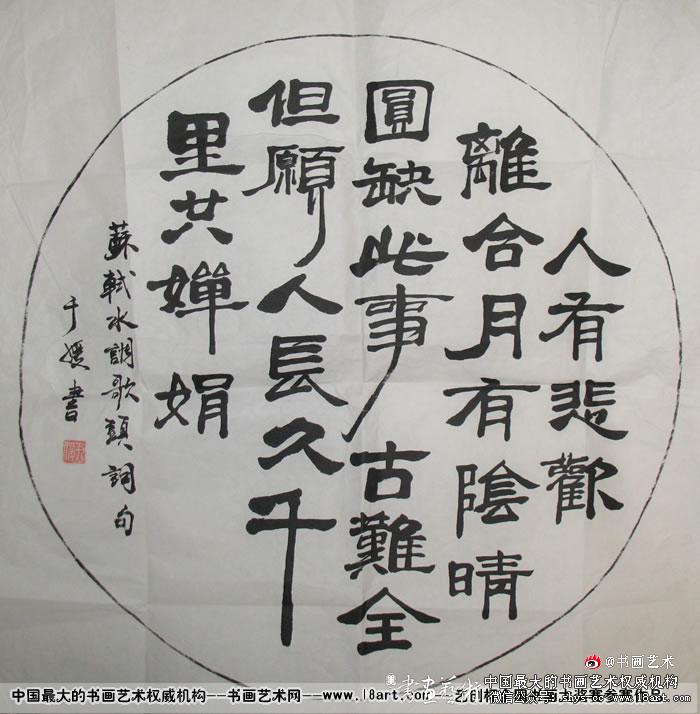 人有悲歡
離合月有陰晴
圓缺此事古難全
但願人長久千
里共嬋娟
蘇軾水調歌頭詞句
于媛書
@书画艺术
中国最大的书画艺术权威机构
中国最大的书画艺术权威机构——书画艺术网——www.18art.com